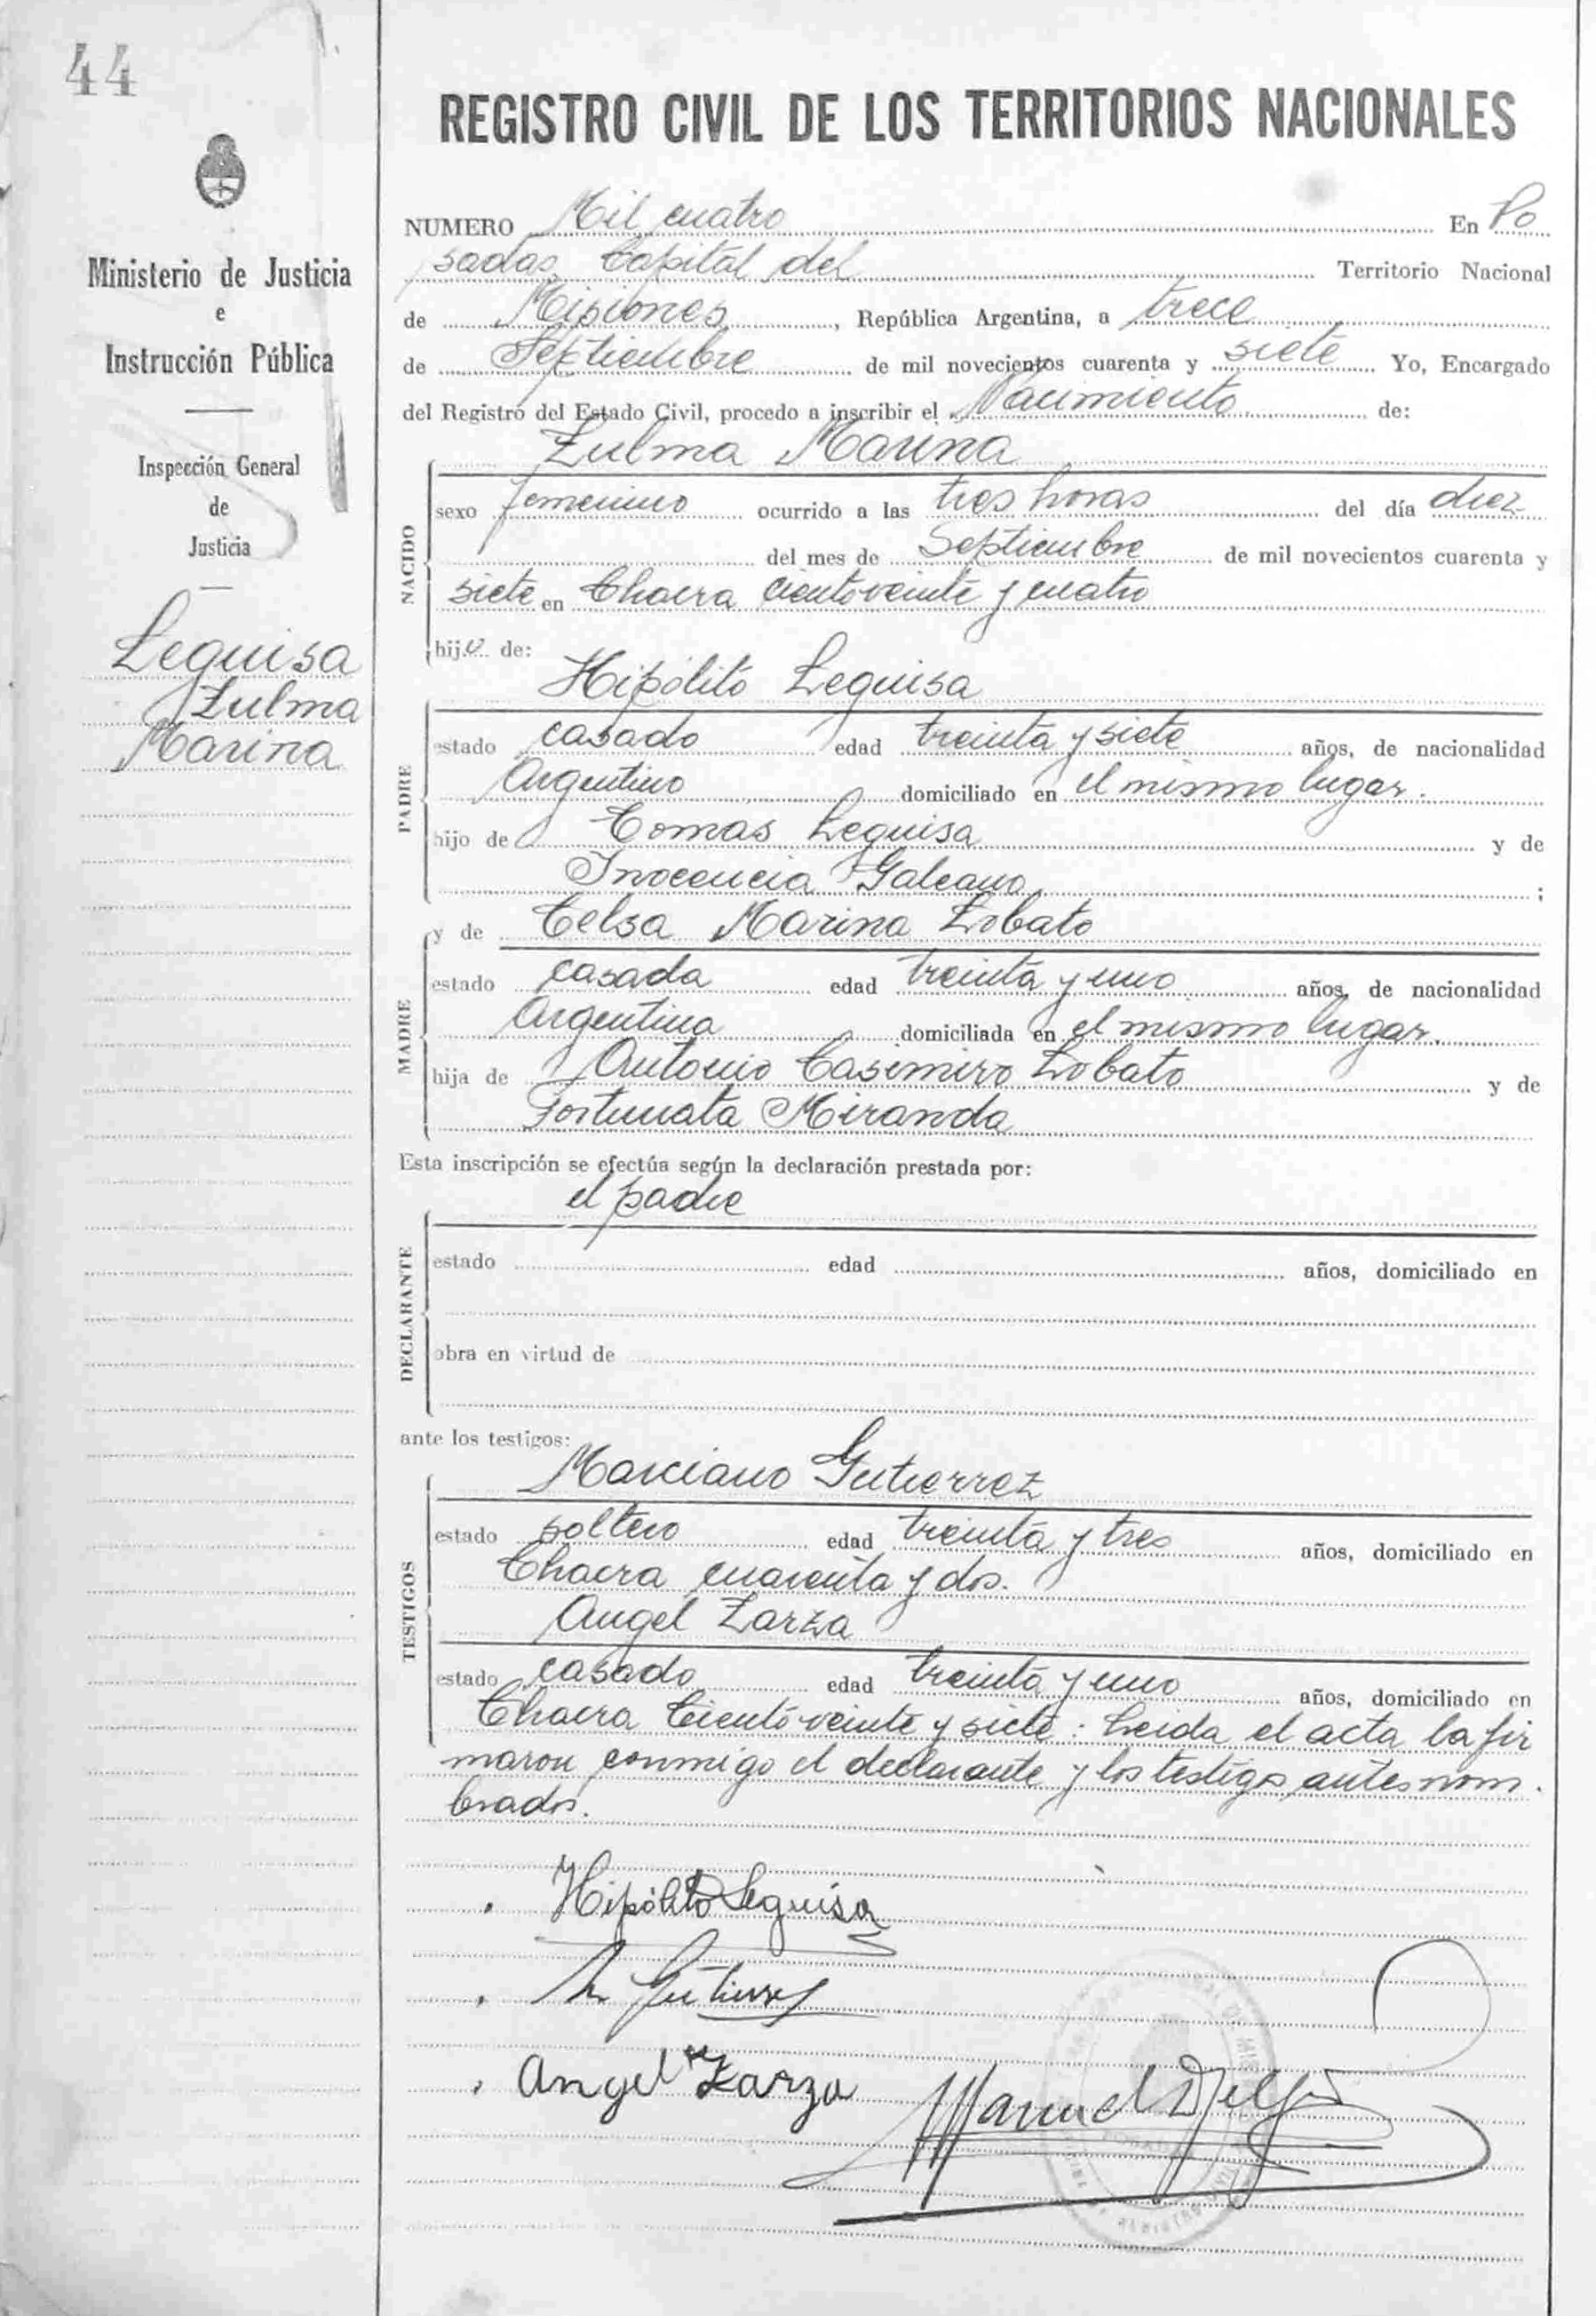 44
Ministerio de Justicia
e
Instrucción Pública
Inspección General
de
Justicia
Leguisa
Zulma
Marina
REGISTRO CIVIL DE LOS TERRITORIOS NACIONALES
NUMERO Mil cuatro En Po
sadas, Capital del Territorio Nacional
de Misiones, República Argentina, a trece
de Septiembre de mil novecientos cuarenta y siete Yo, Encargado
del Registro del Estado Civil, procedo a inscribir el Nacimiento de:
Zulma Marina
NACIDO
sexo femenino ocurrido a las tres horas del día diez
del mes de Septiembre de mil novecientos cuarenta y
siete en Chacra ciento veinte y cuatro
hija de:
Hipólito Leguisa
PADRE
estado casado edad treinta y siete años, de nacionalidad
Argentino domiciliado en el mismo lugar.
hijo de Tomas Leguisa y de
Inocencia Galeano ;
y de Celsa Marina Lobato
MADRE
estado casada edad treinta y uno años, de nacionalidad
Argentina domiciliada en el mismo lugar.
hija de Antonio Casimiro Lobato y de
Fortunata Miranda
Esta inscripción se efectúa según la declaración prestada por:
el padre
DECLARANTE
estado edad años, domiciliado en
obra en virtud de
ante los testigos:
Marciano Gutierrez
TESTIGOS
estado soltero edad treinta y tres años, domiciliado en
Chacra cuarenta y dos.
Angel Zarza
estado casado edad treinta y uno años, domiciliado en
Chacra Ciento veinte y siete: Leida el acta la fir
maron conmigo el declarante y los testigos antes nom.
brados.
Hipólito Leguisa
M Gutierrez
Angel Zarza
Manuel